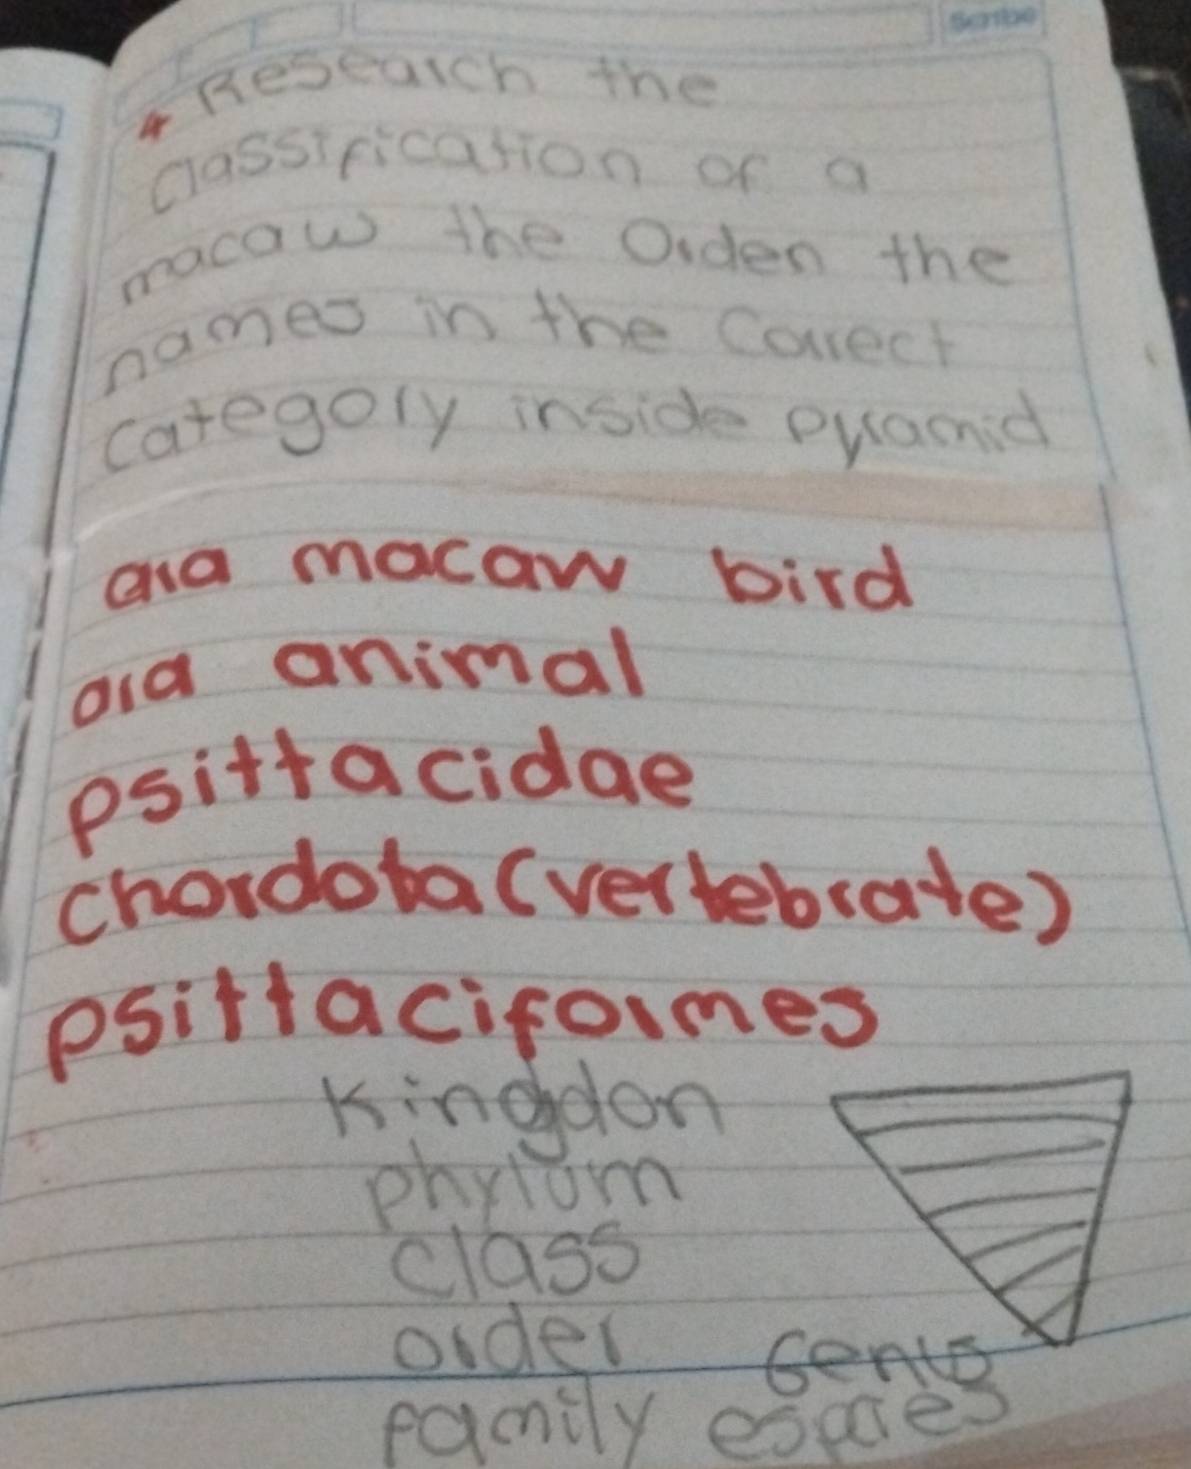 Scribe
Research the
classification of a
macaw the Orden the
names in the Correct
Category inside pyramid
ara macaw bird
ara animal
psittacidae
chordota (vertebrate)
psittaciformes
Kingdon
phylum
class
order
Genus
family